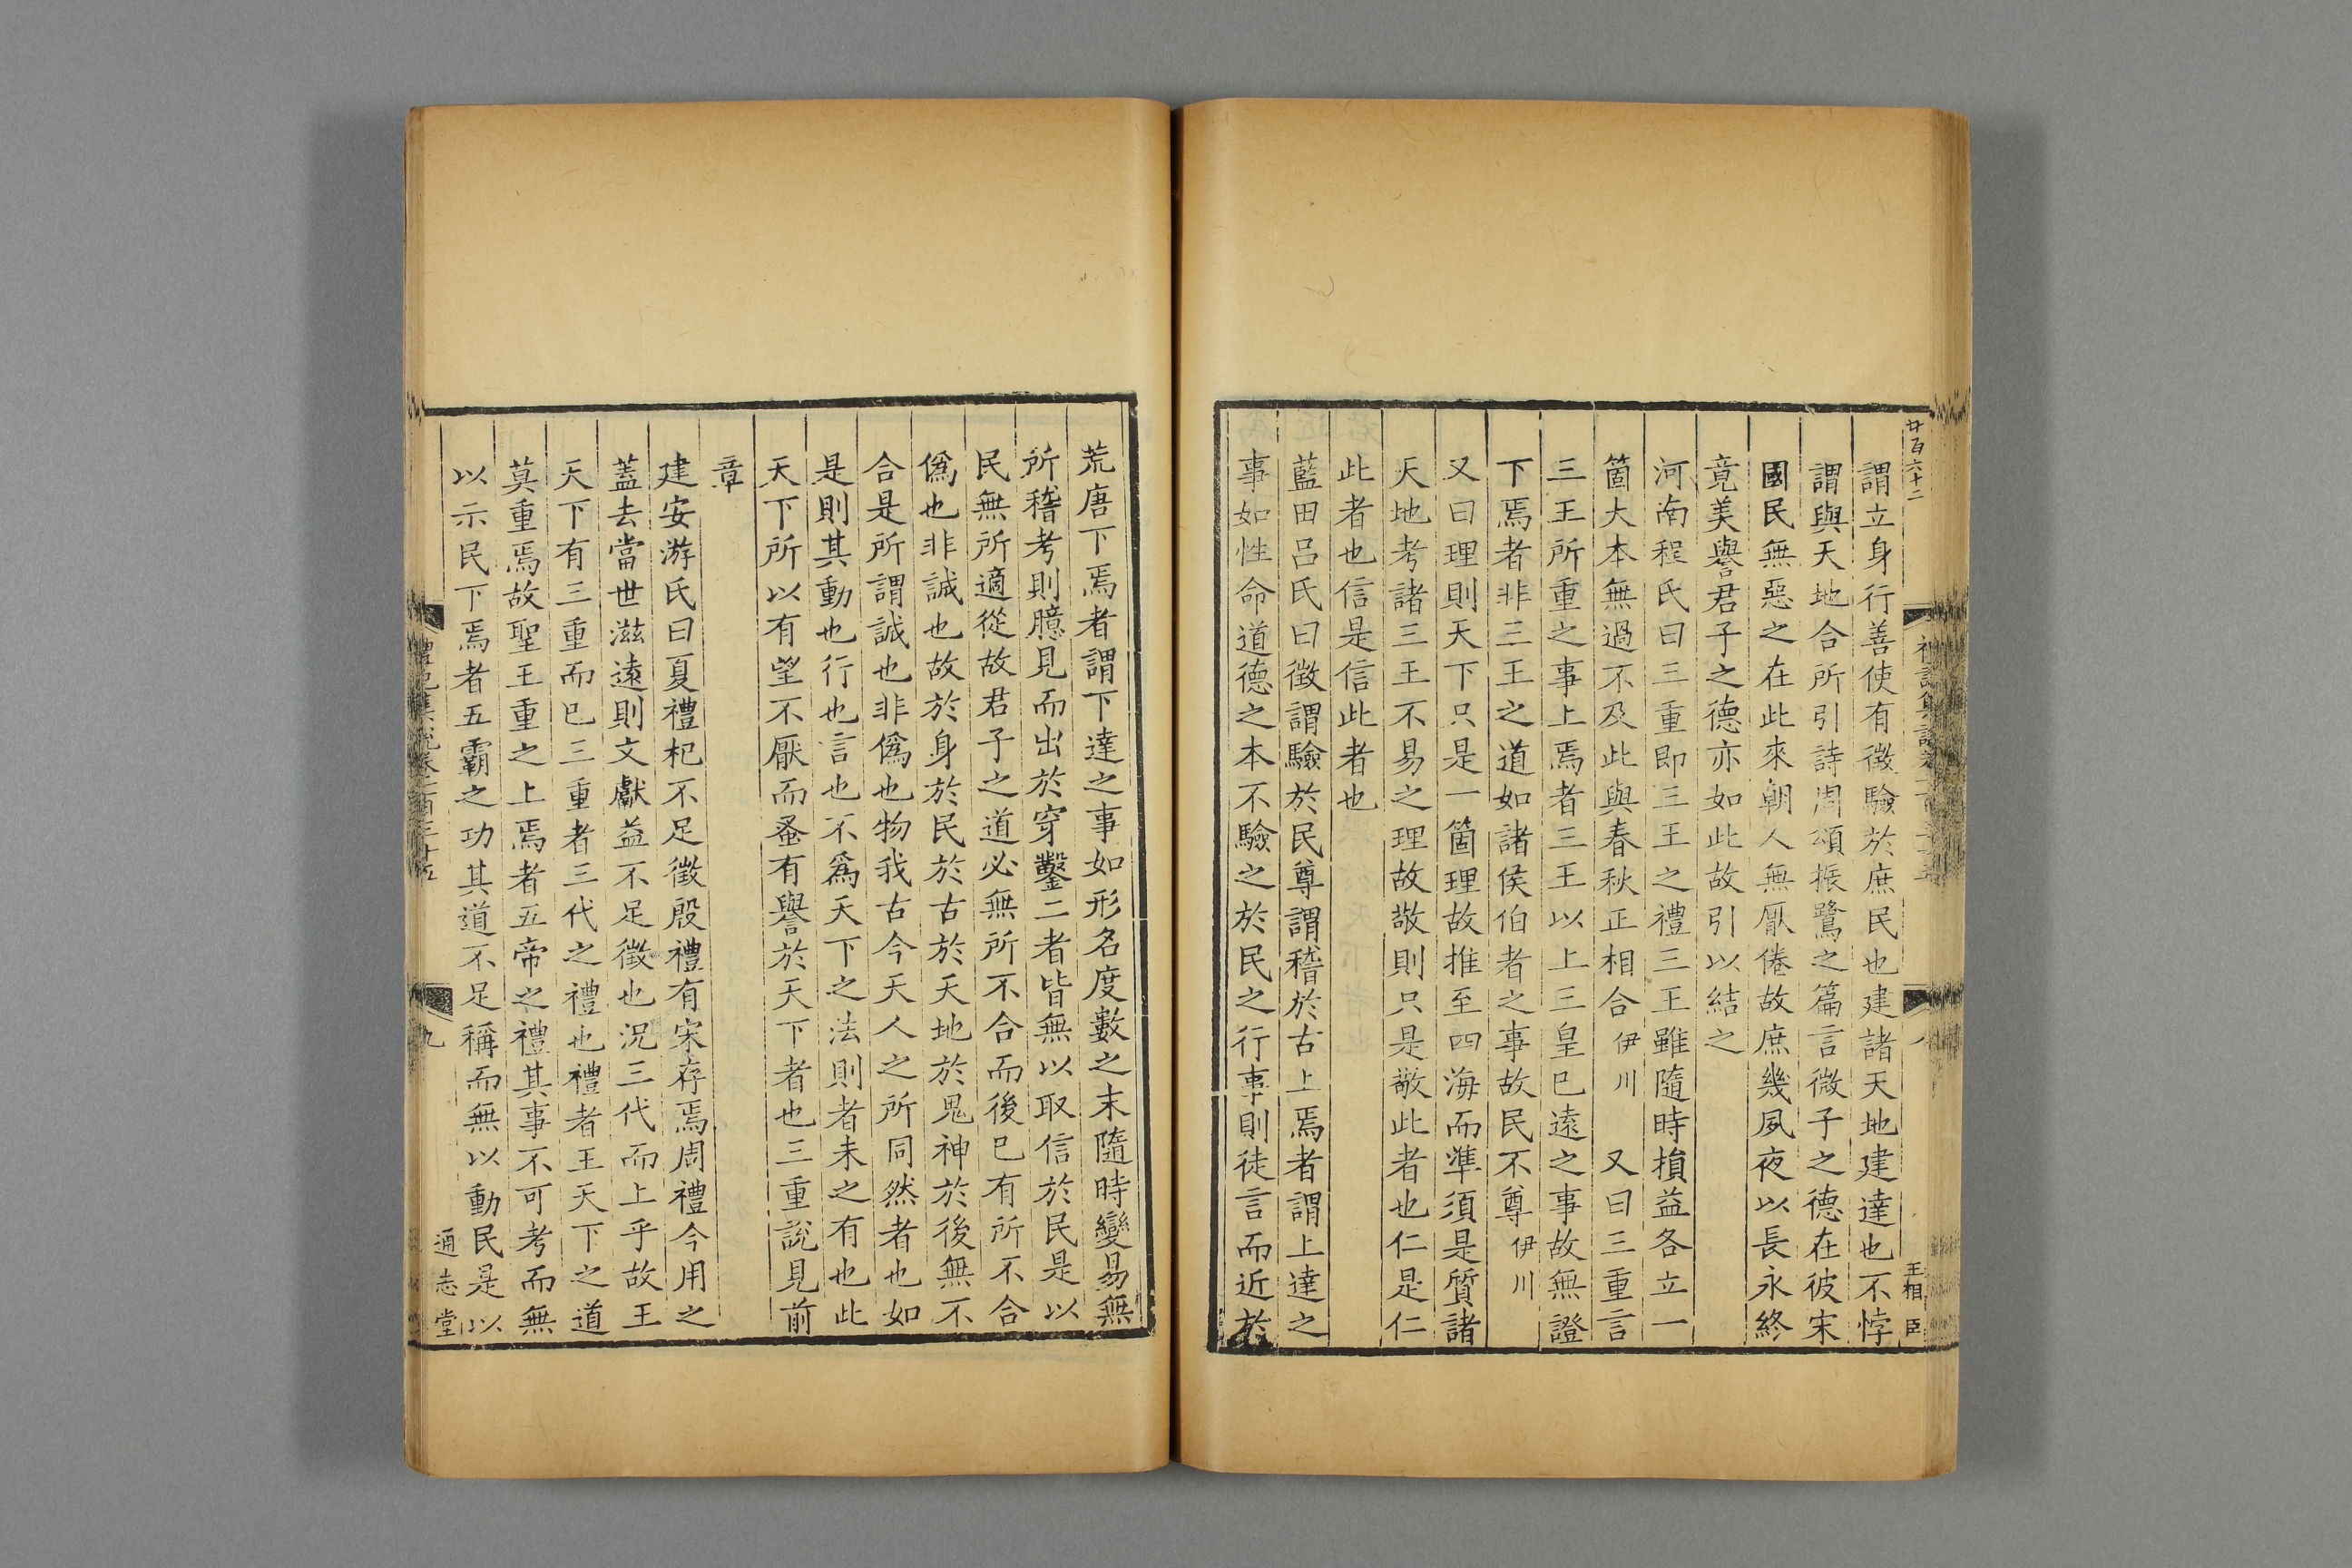 謂立身行善使有徵驗於庶民也建諸天地建達也不悖
謂與天地合所引詩周頌振鷺之篇言微子之德在彼宋
國民無惡之在此來朝人無厭倦故庶幾夙夜以長永終
竟美譽君子之德亦如此故引以結之
河南程氏曰三重即三王之禮三王雖隨時損益各立一
箇大本無過不及此與春秋正相合伊川又曰三重言
三王所重之事上焉者三王以上三皇已遠之事故無證
下焉者非三王之道如諸侯伯者之事故民不尊伊川
又曰理則天下只是一箇理故推至四海而準須是質諸
天地考諸三王不易之理故敬則只是敬此者也仁是仁
此者也信是信此者也
藍田呂氏曰徵謂驗於民尊謂稽於古上焉者謂上達之
事如性命道德之本不驗之於民之行事則徒言而近於
荒唐下焉者謂下達之事如形名度數之末隨時變易無
所稽考則臆見而出於穿鑿二者皆無以取信於民是以
民無所適從故君子之道必無所不合而後已有所不合
僞也非誠也故於身於民於古於天地於鬼神於後無不
合是所謂誠也非僞也物我古今天人之所同然者也如
是則其動也行也言也不爲天下之法則者未之有也此
天下所以有望不厭而蚤有譽於天下者也三重說見前
章
建安游氏曰夏禮杞不足徵殷禮有宋存焉周禮今用之
蓋去當世滋遠則文獻益不足徵也況三代而上乎故王
天下有三重而已三重者三代之禮也禮者王天下之道
莫重焉故聖王重之上焉者五帝之禮其事不可考而無
以示民下焉者五霸之功其道不足稱而無以動民是以
廿百六十二
八
王相臣
九
通志堂